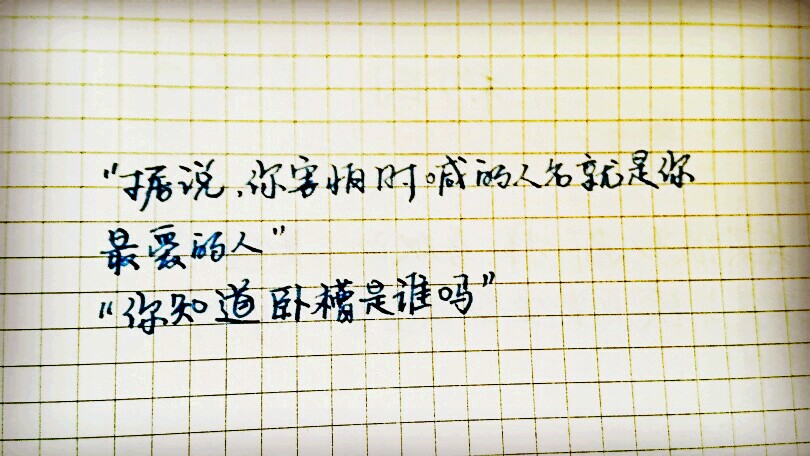 "据说,你害怕时喊的人名就是你
最爱的人"
"你知道卧槽是谁吗"